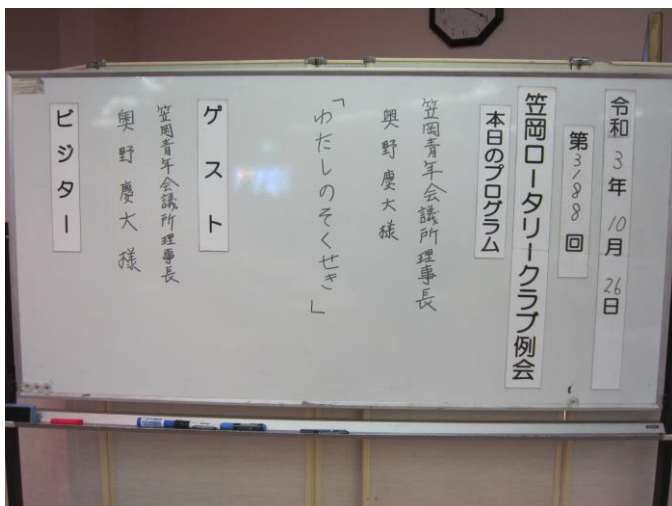 令和3年10月26日
第3188回
笠岡ロータリークラブ例会
本日のプログラム
笠岡青年会議所理事長
奥野慶大様
「わたしのそくせき」
ゲスト
笠岡青年会議所理事長
奥野慶大様
ビジター